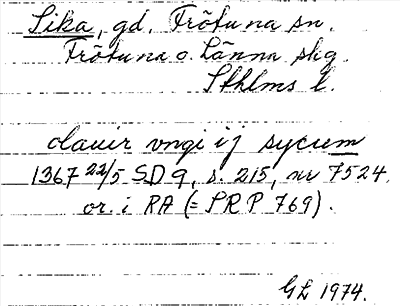 Sika, gd, Frötuna sn.
Frötuna o. Länna skg.
Sthlms l.
olauir vngi ij sycum
1367 22/5 SD 9, s. 215, nr 7524,
or. i RA (= SRP 769).
GL 1974.